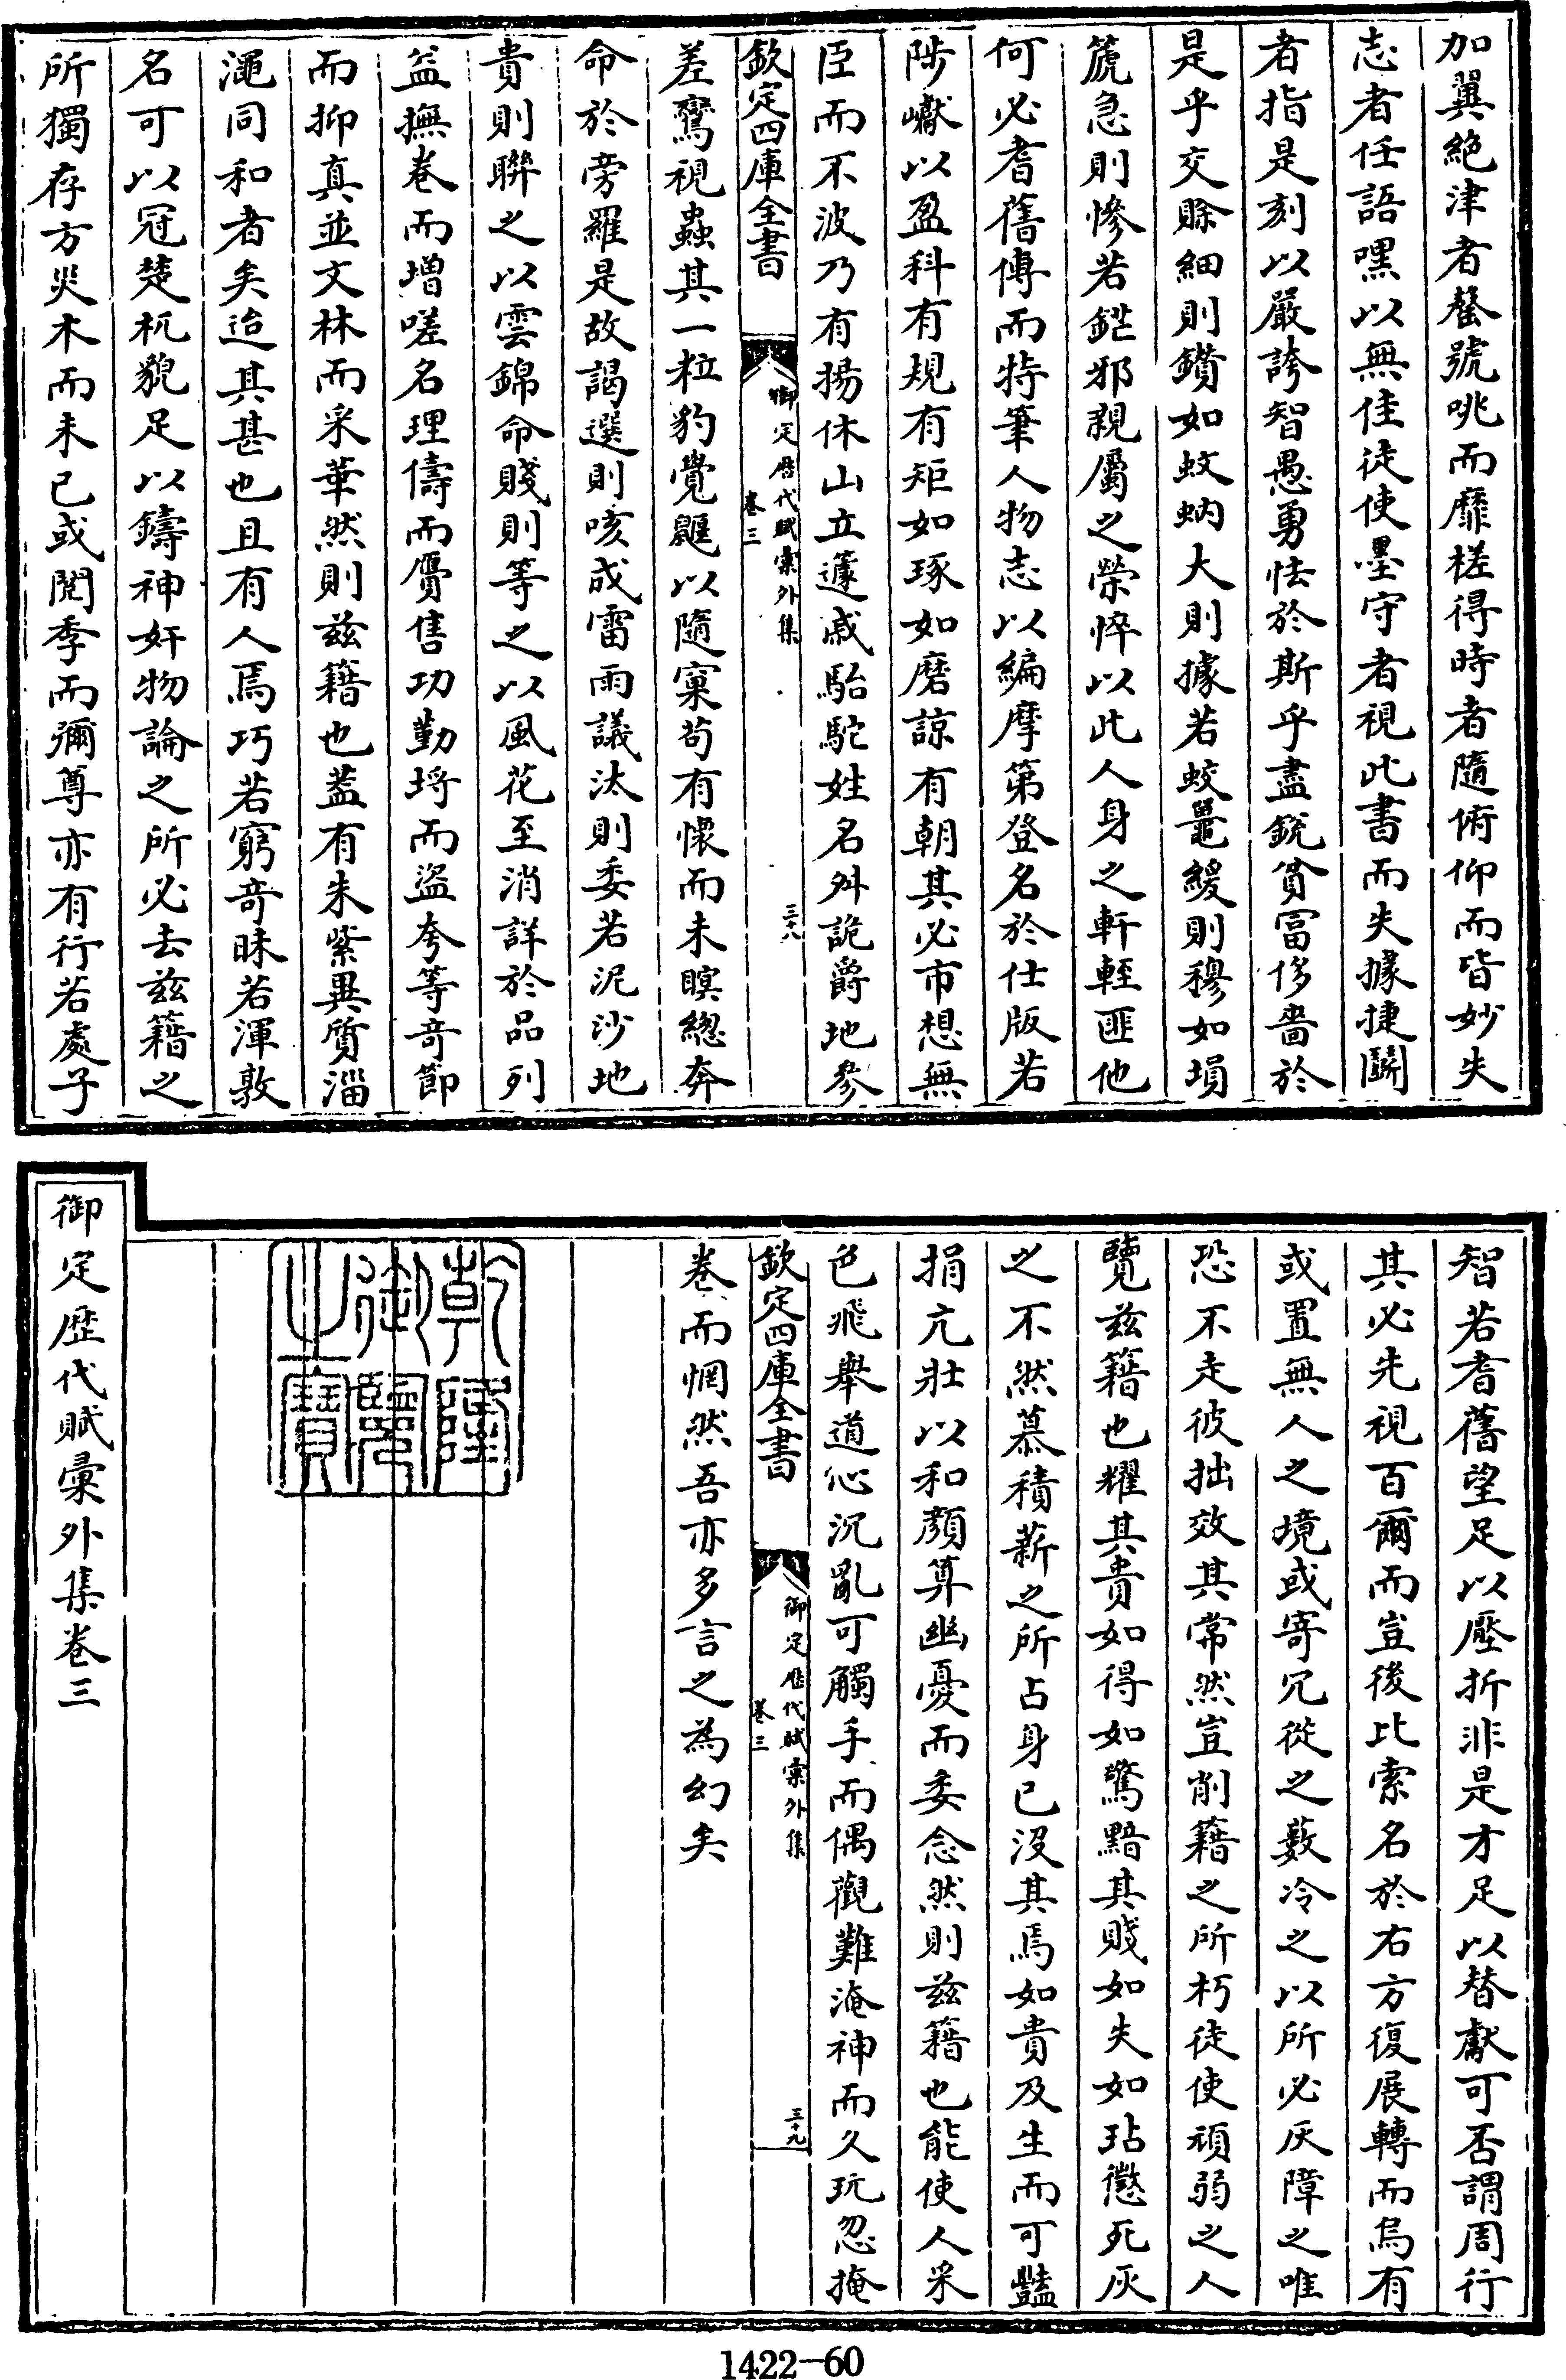 加翼絶津者聱號咷而靡槎得時者隨俯仰而皆妙失
志者任語嘿以無佳徒使墨守者視此書而失據捷鬭
者指是刻以嚴誇智愚勇怯於斯乎盡銳貧富侈嗇於
是乎交賒細則鑽如蚊蚋大則據若蛟鼉緩則穆如塤
篪急則慘若鋩邪親屬之榮悴以此人身之軒輊匪他
何必耆舊傳而特筆人物志以編摩第登名於仕版若
陟巘以盈科有規有矩如琢如磨諒有朝其必市想無
臣而不波乃有揚休山立蘧戚駘駝姓名舛詭爵地參
欽定四庫全書
御定歷代賦彙外集
卷三
三十八
差鸞視蟲其一粒豹覺鼴以隨窠茍有懷而未瞑緫奔
命於旁羅是故謁選則咳成雷雨議汰則委若泥沙地
貴則聨之以雲錦命賤則等之以風花至消詳於品列
益撫卷而增嗟名理儔而贗售功勤埒而盜夸等竒節
而抑真並文林而采華然則兹籍也葢有朱紫異質淄
澠同和者矣迨其甚也且有人焉巧若窮竒昧若渾敦
名可以冠楚杌貌足以鑄神奸物論之所必去兹籍之
所獨存方災木而未已或閲季而彌尊亦有行若處子
智若耆舊望足以壓折誹是才足以替獻可否謂周行
其必先視百爾而豈後比索名於右方復展轉而烏有
或置無人之境或寄冗從之藪冷之以所必厭障之唯
恐不走彼拙效其常然豈削籍之所朽徒使頑弱之人
覽兹籍也耀其貴如得如驚黯其賤如失如玷懲死灰
之不然慕積薪之所占身已沒其焉如貴及生而可豔
捐亢壯以和顏算幽憂而委念然則兹籍也能使人采
色飛舉道心沉亂可觸手而偶觀難淹神而久玩忽掩
欽定四庫全書
御定歷代賦彙外集
卷三
三十九
卷而惘然吾亦多言之為幻矣
乾隆
御覽
之寶
御定歷代賦彙外集卷三
1422-60